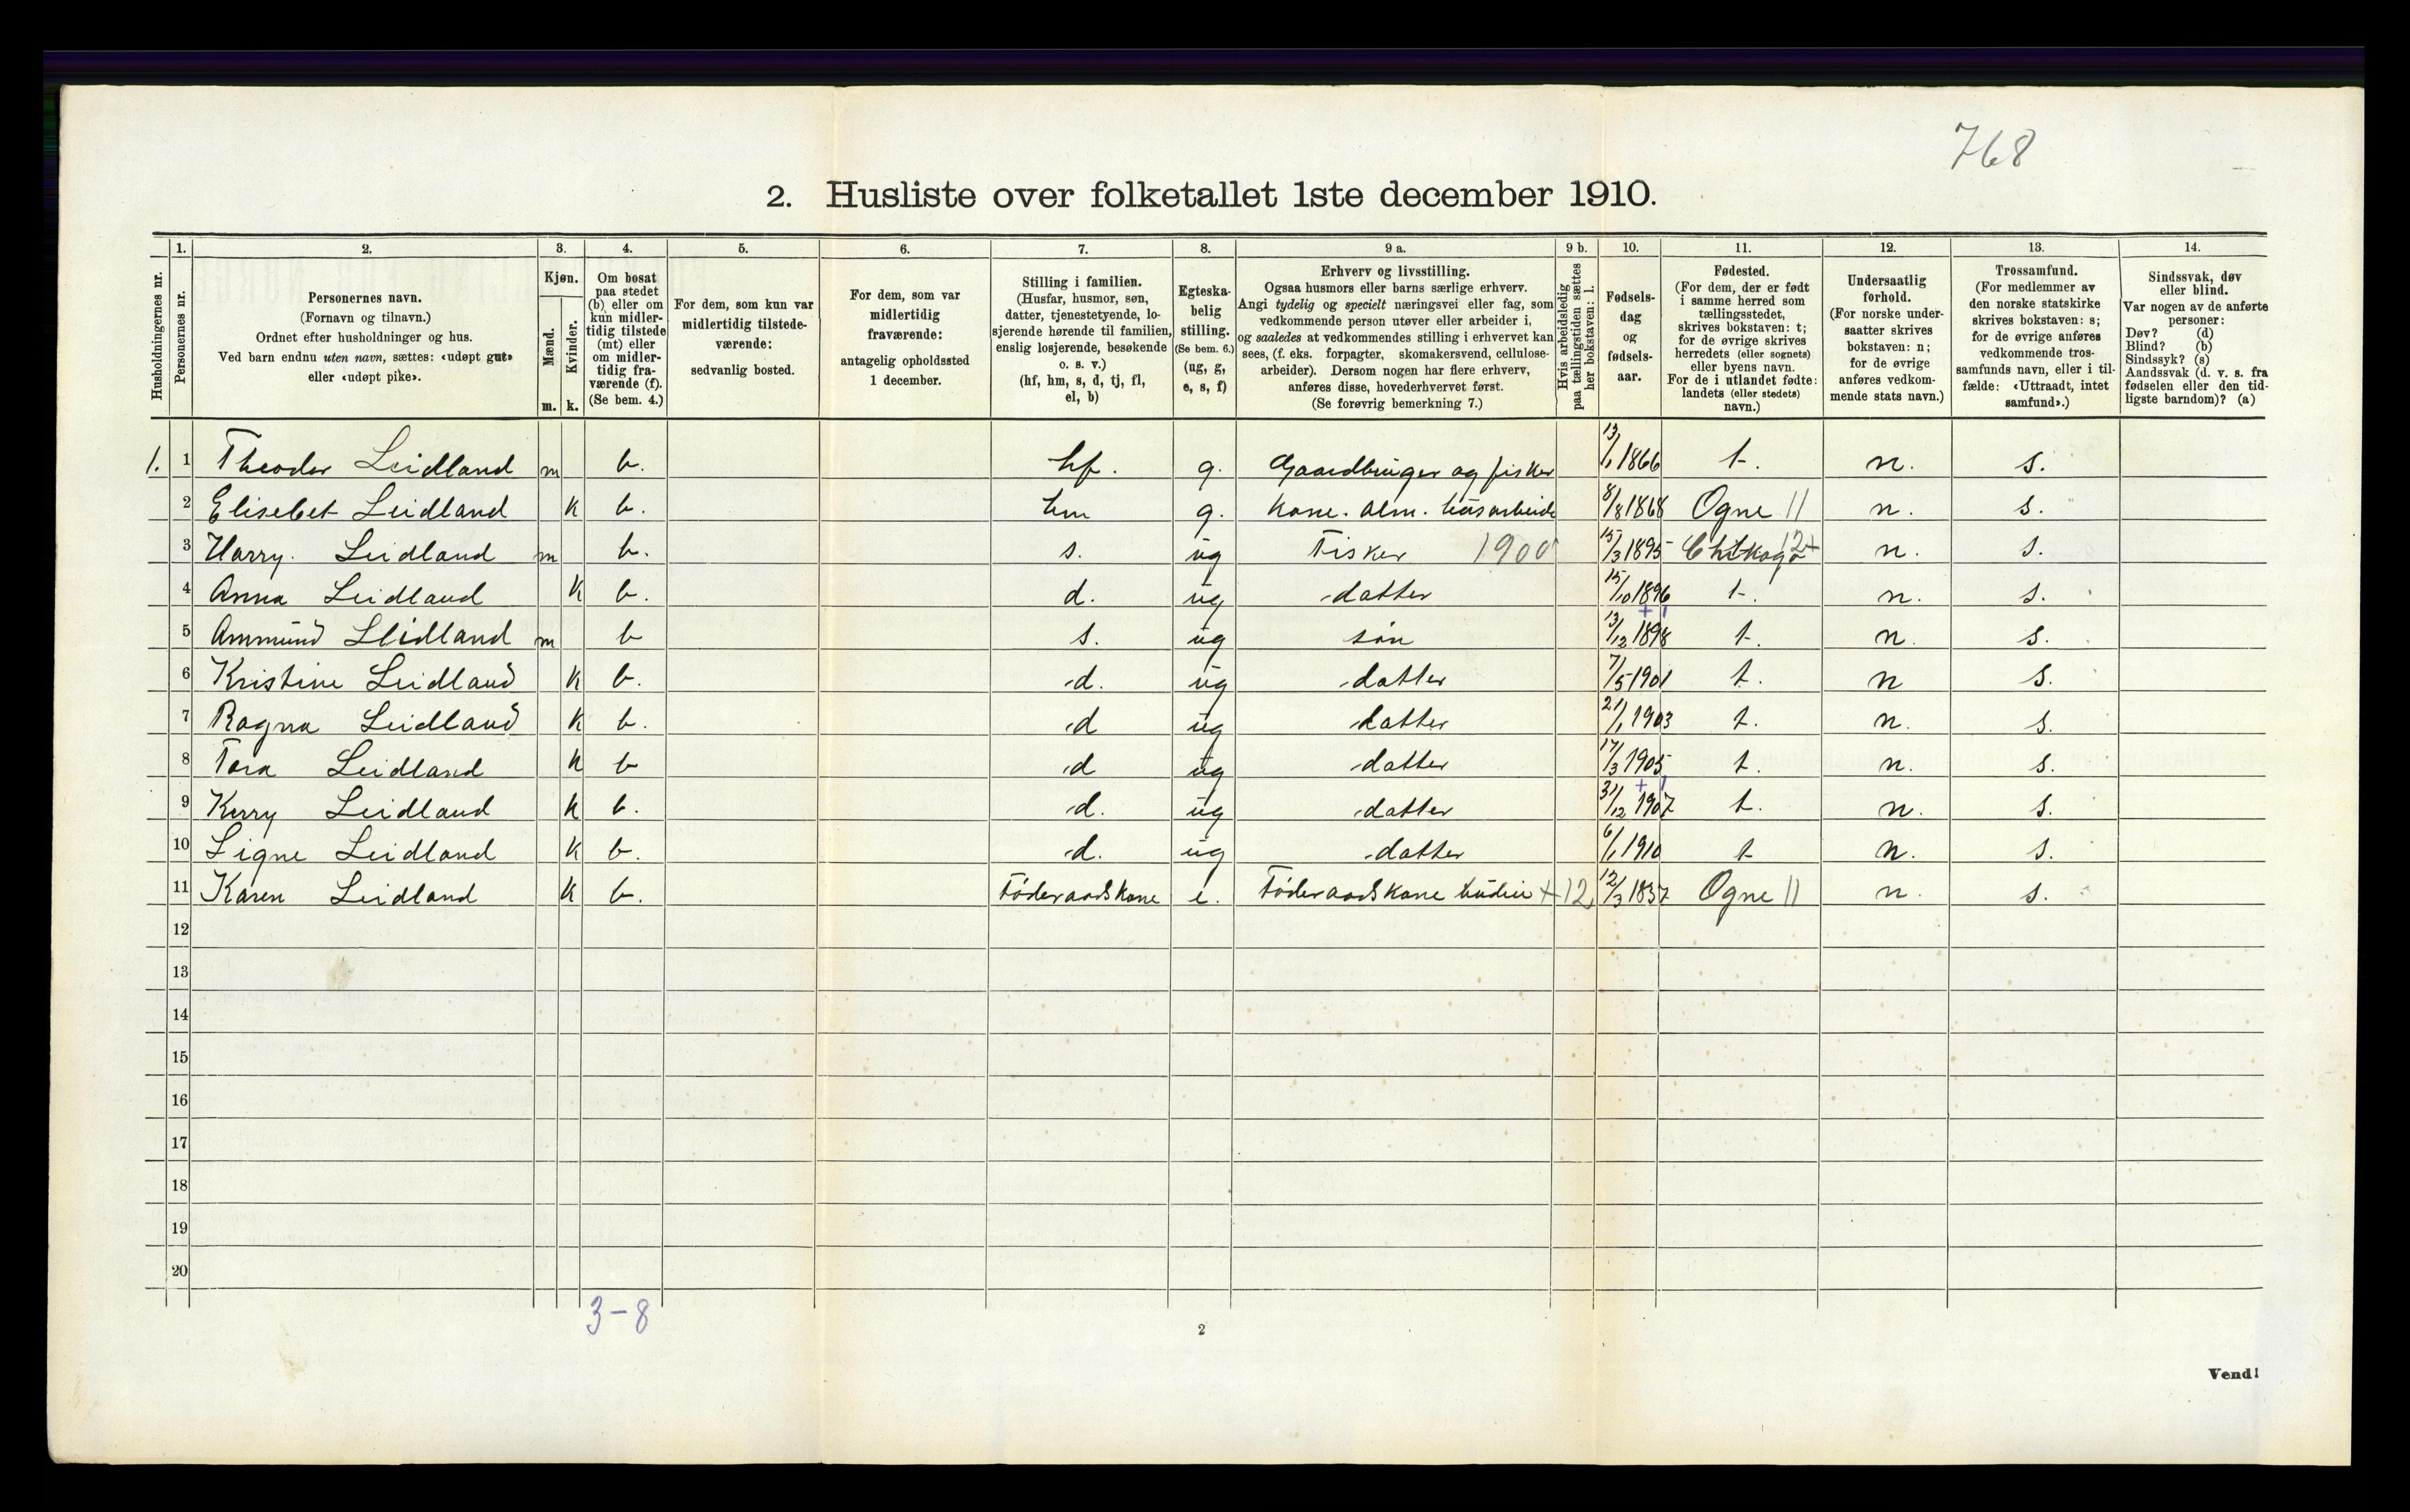 768
2. Husliste over folketallet 1ste december 1910.
Husholdningernes nr.
1. Personernes nr.
2. Personernes navn.
(Fornavn og tilnavn.)
Ordnet efter husholdninger og hus.
Ved barn endnu uten navn, sættes: «udøpt gut»
eller «udøpt pike».
3. Kjøn.
Mænd. m.
Kvinder. k.
4. Om bosat
paa stedet
(b) eller om
kun midler-
tidig tilstede
(mt) eller
om midler-
tidig fra-
værende (f).
(Se bem. 4.)
5. For dem, som kun var
midlertidig tilstede-
værende:
sedvanlig bosted.
6. For dem, som var
midlertidig
fraværende:
antagelig opholdssted
1 december.
7. Stilling i familien.
(Husfar, husmor, søn,
datter, tjenestetyende, lo-
sjerende hørende til familien,
enslig losjerende, besøkende
o. s. v.)
(hf, hm, s, d, tj, fl,
el, b)
8. Egteska-
belig
stilling.
(Se bem. 6.)
(ug, g,
e, s, f)
9 a. Erhverv og livsstilling.
Ogsaa husmors eller barns særlige erhverv.
Angi tydelig og specielt næringsvei eller fag, som
vedkommende person utøver eller arbeider i,
og saaledes at vedkommendes stilling i erhvervet kan
sees, (f. eks. forpagter, skomakersvend, cellulose-
arbeider). Dersom nogen har flere erhverv,
anføres disse, hovederhvervet først.
(Se forøvrig bemerkning 7.)
9 b. Hvis arbeidsledig
paa tællingstiden sættes
her bokstaven: l.
10. Fødsels-
dag
og
fødsels-
aar.
11. Fødested.
(For dem, der er født
i samme herred som
tællingsstedet,
skrives bokstaven: t;
for de øvrige skrives
herredets (eller sognets)
eller byens navn.
For de i utlandet fødte:
landets (eller stedets)
navn.)
12. Undersaatlig
forhold.
(For norske under-
saatter skrives
bokstaven: n;
for de øvrige
anføres vedkom-
mende stats navn.)
13. Trossamfund.
(For medlemmer av
den norske statskirke
skrives bokstaven: s;
for de øvrige anføres
vedkommende tros-
samfunds navn, eller i til-
fælde: «Uttraadt, intet
samfund».)
14. Sindssvak, døv
eller blind.
Var nogen av de anførte
personer:
Døv? (d)
Blind? (b)
Sindssyk? (s)
Aandssvak (d. v. s. fra
fødselen eller den tid-
ligste barndom)? (a)
1. 1 Theodor Leidland m b. hf. g. Gaardbruger og fisker 13/1 1866 t. n. s.
2 Elisebet Leidland k b. hm g. Kone. Alm. husarbeide 8/8 1868 Ogne 11 n. s.
3 Harry. Leidland m b. s. ug Fisker 1900 15/3 1895 n. s.
4 Anna Leidland k b. d. ug datter 15/10 1896 t. n. s.
5 Ammund Leidland m b s. ug søn 13/12 1898 t. n. s.
6 Kristine Leidland k b. d. ug datter 7/5 1901 t. n s.
7 Ragna Leidland k b. d ug datter 21/1 1903 t. n. s.
8 Tora Leidland k b d ug datter 17/3 1905 t. n. s.
9 Leidland k b. d. ug datter 31/12 1907 t. n. s.
10 Signe Leidland k b. d. ug datter 6/1 1910 t n. s.
11 Karen Leidland k b. Føderaadskone e. Føderaadskone + 12 12/3 1837 Ogne 11 n. s.
12
13
14
15
16
17
18
19
20
3-8
2
Vend!